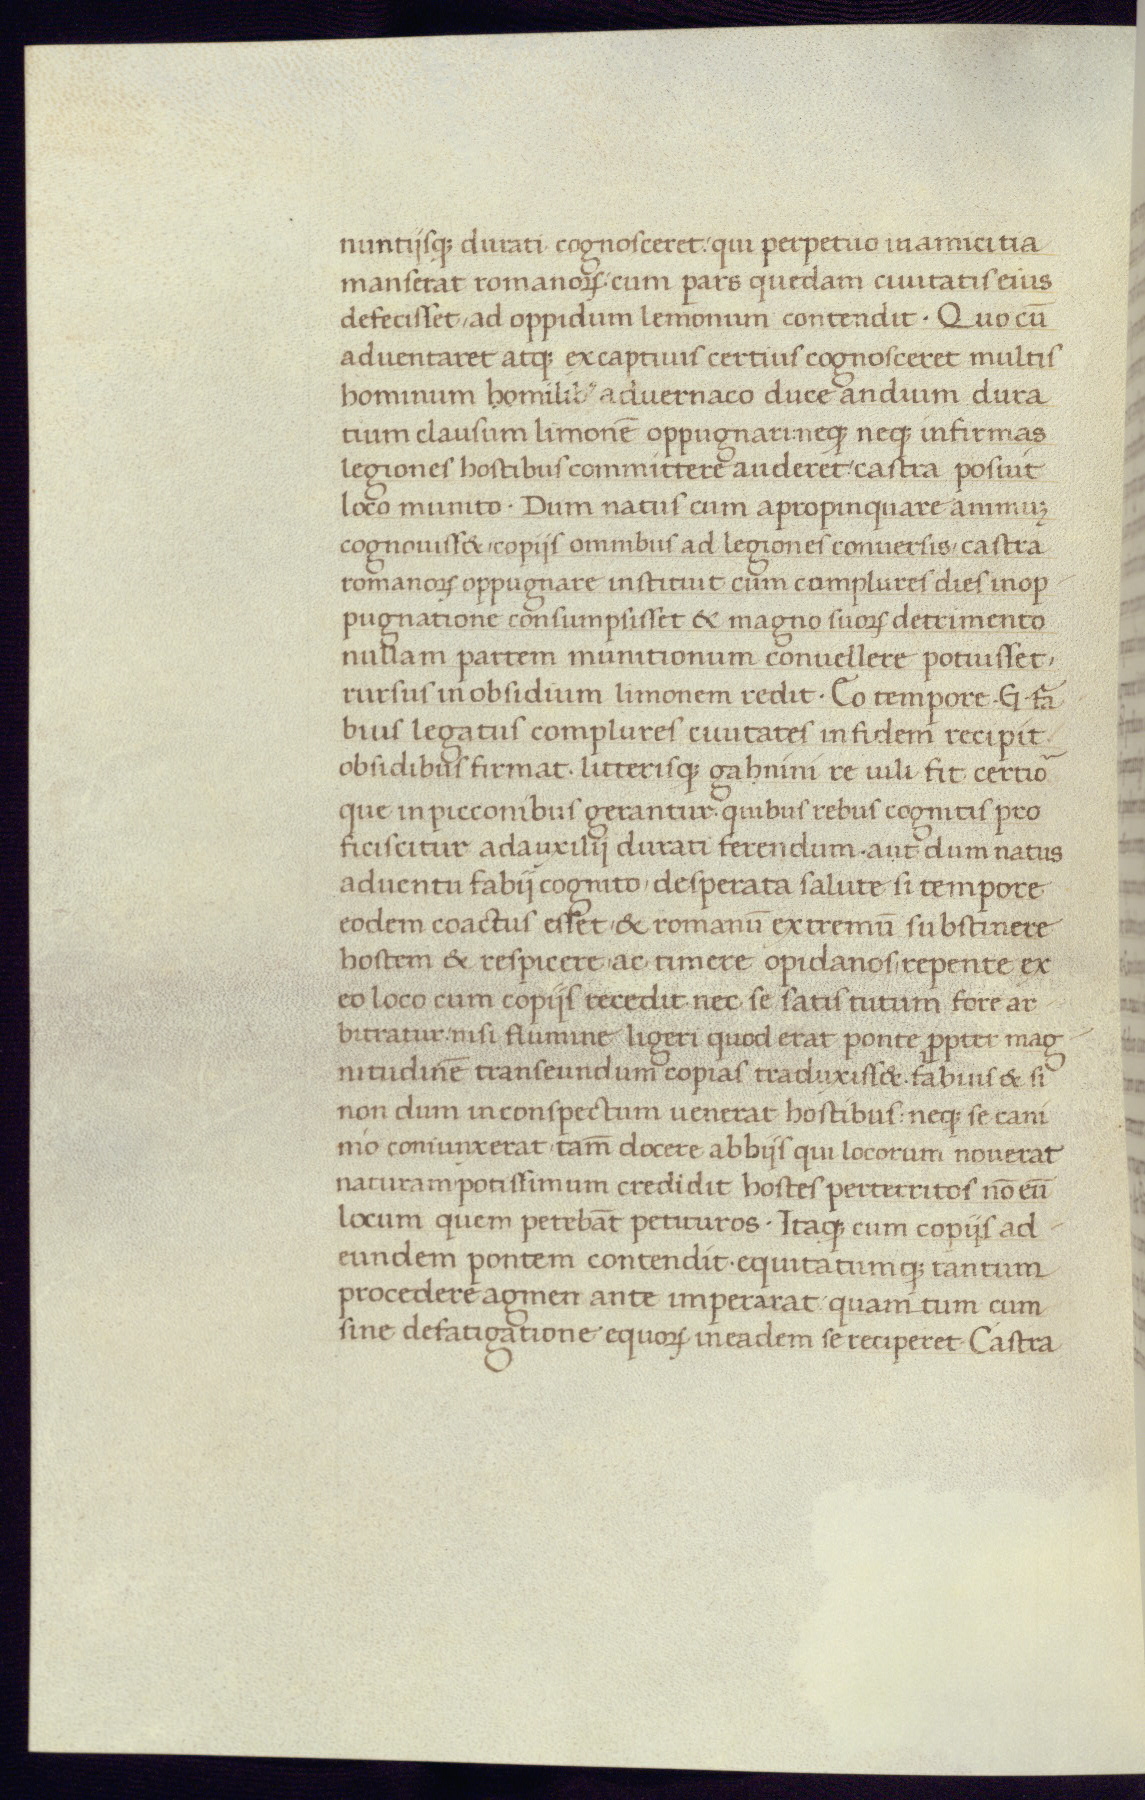 nuntijsq; durati cognosceret: qui perpetuo in amicitia
manserat romanoꝝ: cum pars quedam ciuitatis eius
defecisset, ad oppidum lemonum contendit. Quo cū
aduentaret atq; ex captiuis certius cognosceret multis
hominum aduernaco duce andium dura
tium clausum limonē oppugnari: neq; neq; infirmas
legiones hostibus committere auderet, castra posuit
loco munito. Dum natus cum apropinquare animuꝫ
cognouiss&, copijs omnibus ad legiones conuersis, castra
romanoꝝ oppugnare instituit cum complures dies in op
pugnatione consumpsisset & magno suoꝝ detrimento
nullam partem munitionum conuellere potuisset,
rursus in obsidium limonem redit. Eo tempore .G. fa
bius legatus complures ciuitates in fidem recipit
obsidibus firmat. litterisq; gabnini re uili fit certio
que in picconibus gerantur. quibus rebus cognitis pro
ficiscitur ad auxilij durati ferendum. aut dum natus
aduentu fabij cognito, desperata salute si tempore
eodem coactus esset, & romanū extremū substinere
hostem & respicere, ac timere opidanos, repente ex
eo loco cum copijs recedit nec se satis tutum fore ar
bitratur, nisi flumine ligeri quod erat ponte ꝓpter mag
nitudinē transeundum copias traduxiss&. fabius & si
non dum in conspectum uenerat hostibus: neq; se cani
nio coniunxerat tam̄ docere abbijs qui locorum nouerat
naturam potissimum credidit hostes perterritos nō eū
locum quem petebāt petituros. Itaq; cum copijs ad
eundem pontem contendit. equitatumq; tantum
procedere agmen ante imperarat: quam tum cum
sine defatigatione equoꝝ in eadem se reciperet. Castra